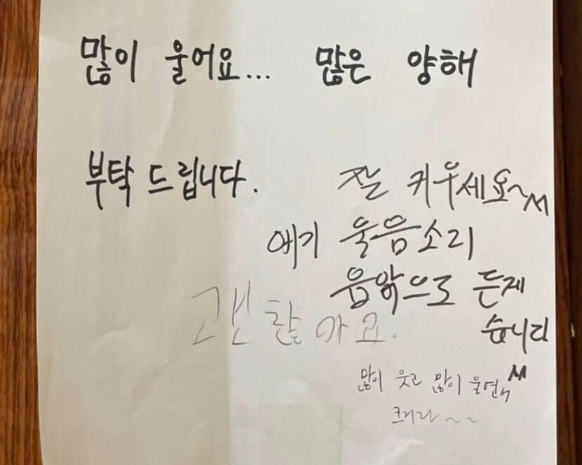 많이 울어요... 많은 양해
부탁 드립니다.
잘 키우세요~
애기 울음소리
음악으로 듣제
습니다
괜찮아요.
많이 웃고 많이 울면서
크거라~~